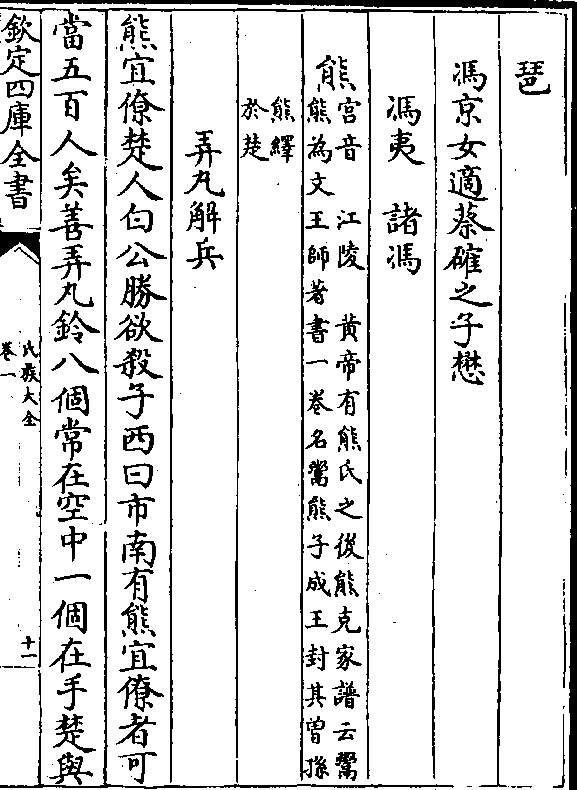 琶
馮京女適蔡確之子懋
馮夷　諸馮
熊
宮音　江陵　黃帝有熊氏之後熊克家譜云鬻
熊為文王師著書一卷名鬻熊子成王封其曾孫
熊繹
於楚
弄丸解兵
熊宜僚楚人白公勝欲殺子西曰市南有熊宜僚者可
當五百人矣善弄丸鈴八個常在空中一個在手楚與
欽定四庫全書
氏族大全
卷一
十一